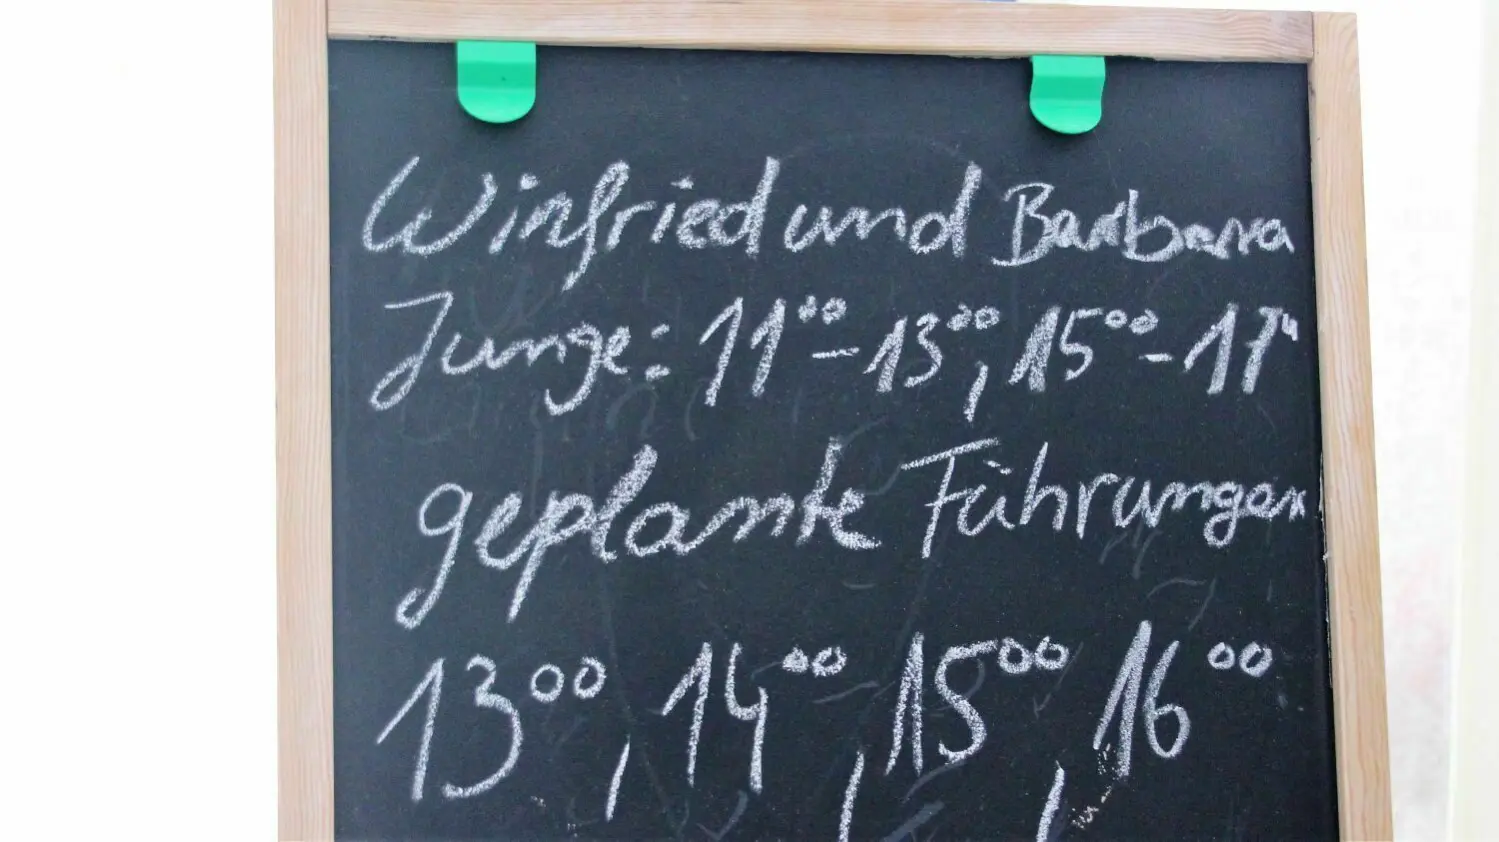 Winfried und Barbara
Junge: 11⁰⁰ – 13⁰⁰, 15⁰⁰ – 17
geplante Führungen
13⁰⁰, 14⁰⁰, 15⁰⁰, 16⁰⁰